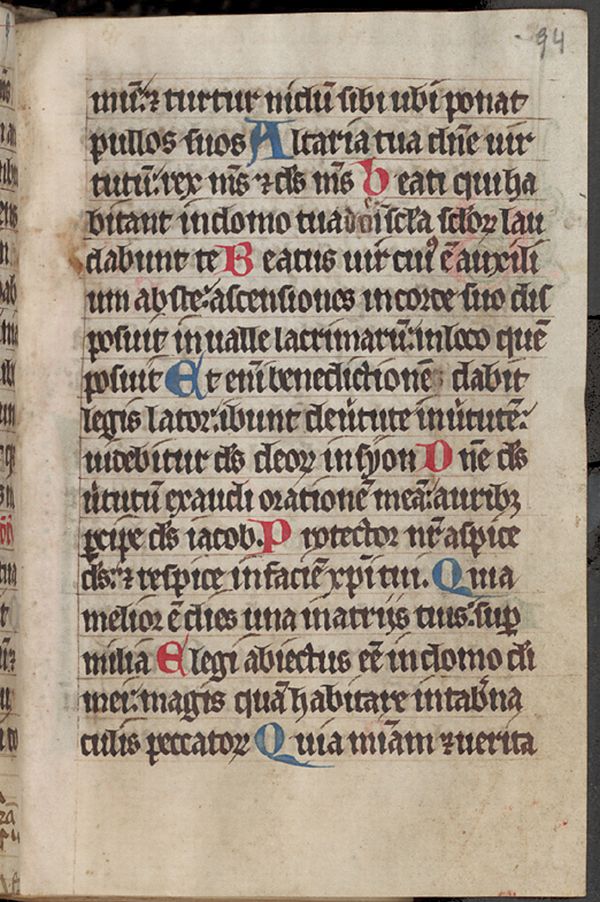 94
mū: ⁊ turtur nidū sibi ubi ponat
pullos suos Altaria tua dn̄e uir
tutū: rex m̄s ⁊ ds̄ m̄s Beati qui ha
bitant in domo tua dn̄e in scl̄a scl̄oꝝ lau
dabunt te Beatus uir cuiꝰ ē auxili
um abs te: ascensiones in corde suo dis
posuit in ualle lacrimarū: in loco quē
posuit Et enī benedictionē dabit
legis lator: ibunt de ũtute in ũtutē:
uidebitur ds̄ deoꝝ in syon Dn̄e ds̄
ũtutū exaudi orationē meā: auribꝫ
ꝑcipe ds̄ iacob. Protector nr̄ aspice
ds̄: ⁊ respice in faciē xp̄i tui. Quia
melior ē dies una in atrijs tuis: suꝑ
milia Elegi abiectus eē in domo dī
mei: magis quā habitare in tab̄na
culis peccatoꝝ Quia mīam ⁊ uerita